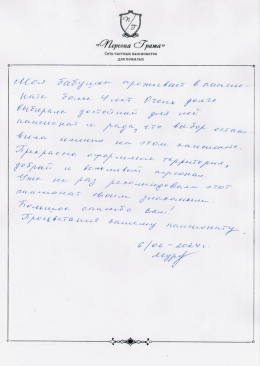 «Персона Грата»
Сеть частных пансионатов
для пожилых
Моя бабушка проживает в пансио-
нате более 4 лет. Очень долго
выбирала достойный для неё
пансионат и рада, что выбор оста-
вила именно на этом пансионе.
Прекрасно оформлена территория,
добрый и вежливый персонал.
Уже не раз рекомендовала этот
пансионат своим знакомым.
Большое спасибо Вам!
Процветания вашему пансионату.
6/06 - 2024г.